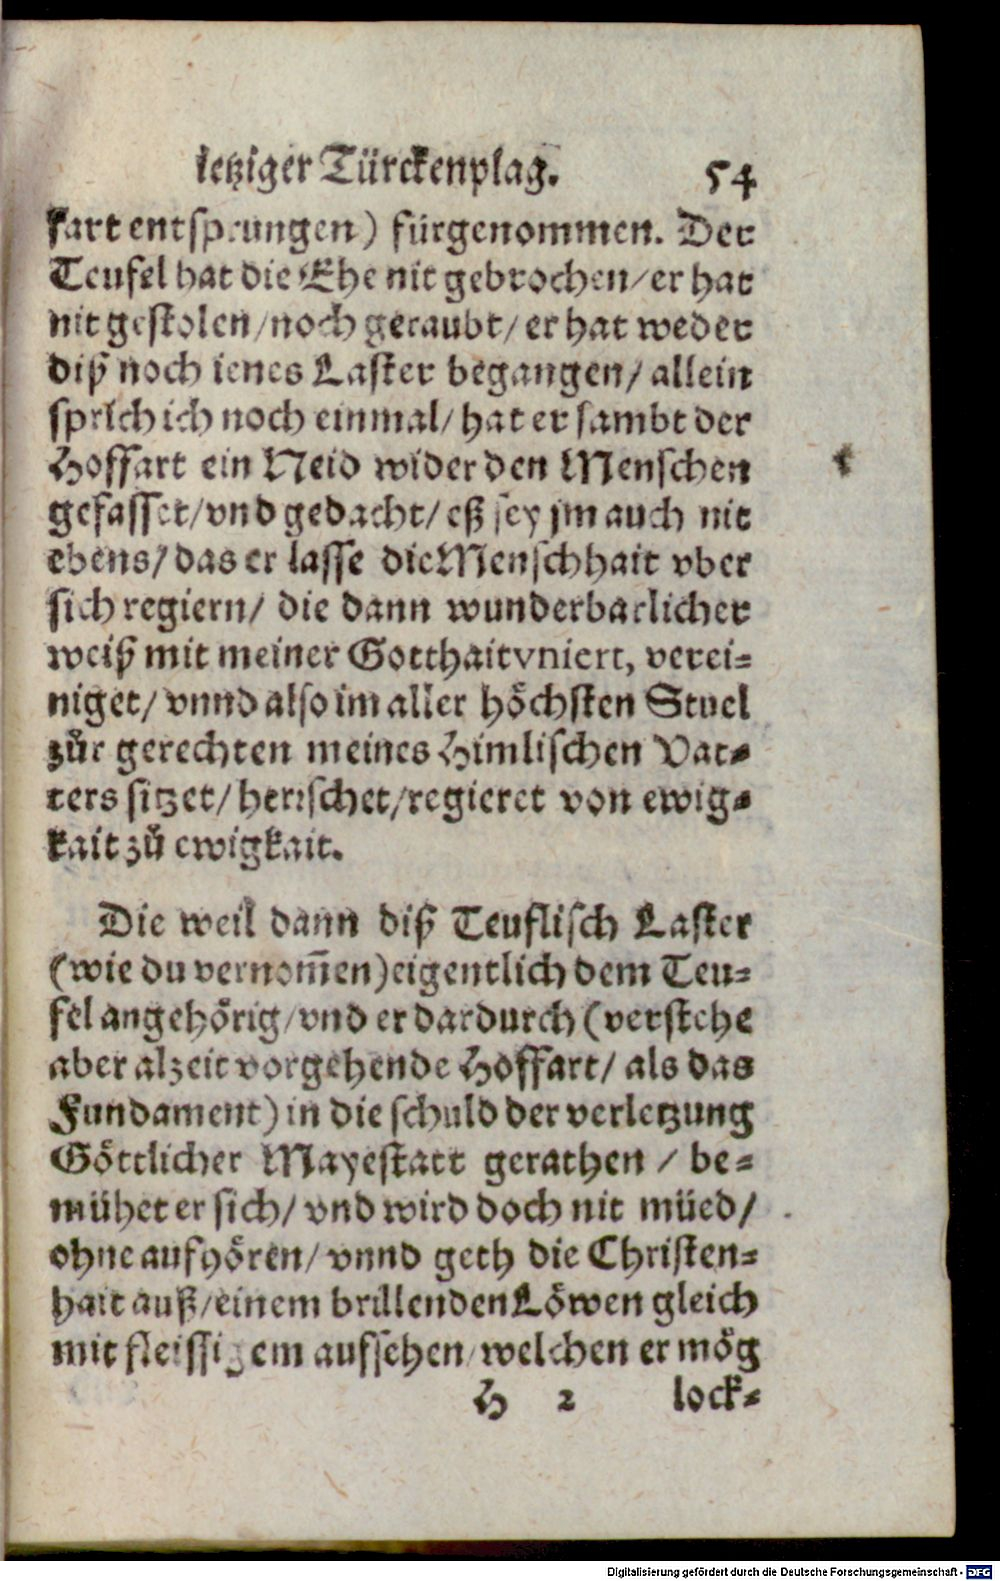 ietziger Türckenplag. 54
fart entsprungen) fürgenommen. Der
Teufel hat die Ehe nit gebrochen/er hat
nit gestolen/noch geraubt/er hat weder
diß noch ienes Laster begangen/allein
sprich ich noch einmal/hat er sambt der
Hoffart ein Neid wider den Menschen
gefasset/vnd gedacht/eß sey jm auch nit
ebens/das er lasse die Menschhait vber
sich regiern/ die dann wunderbarlicher
weiß mit meiner Gotthait vniert, verei-
niget/ vnnd also im aller höchsten Stuel
zůr gerechten meines Himlischen Vat-
ters sitzet/herrschet/regieret von ewig-
kait zů ewigkait.
Die weil dann diß Teuflisch Laster
(wie du vernom̄en) eigentlich dem Teu-
fel angehörig/vnd er dardurch (verstehe
aber alzeit vorgehende Hoffart/ als das
Fundament) in die schuld der verletzung
Göttlicher Mayestatt gerathen / be-
mühet er sich/ vnd wird doch nit müed/
ohne aufhören/ vnnd geth die Christen-
hait auß/einem brillenden Löwen gleich
mit fleissigem aufsehen/welchen er mög
H 2 lock-
Digitalisierung gefördert durch die Deutsche Forschungsgemeinschaft - DFG